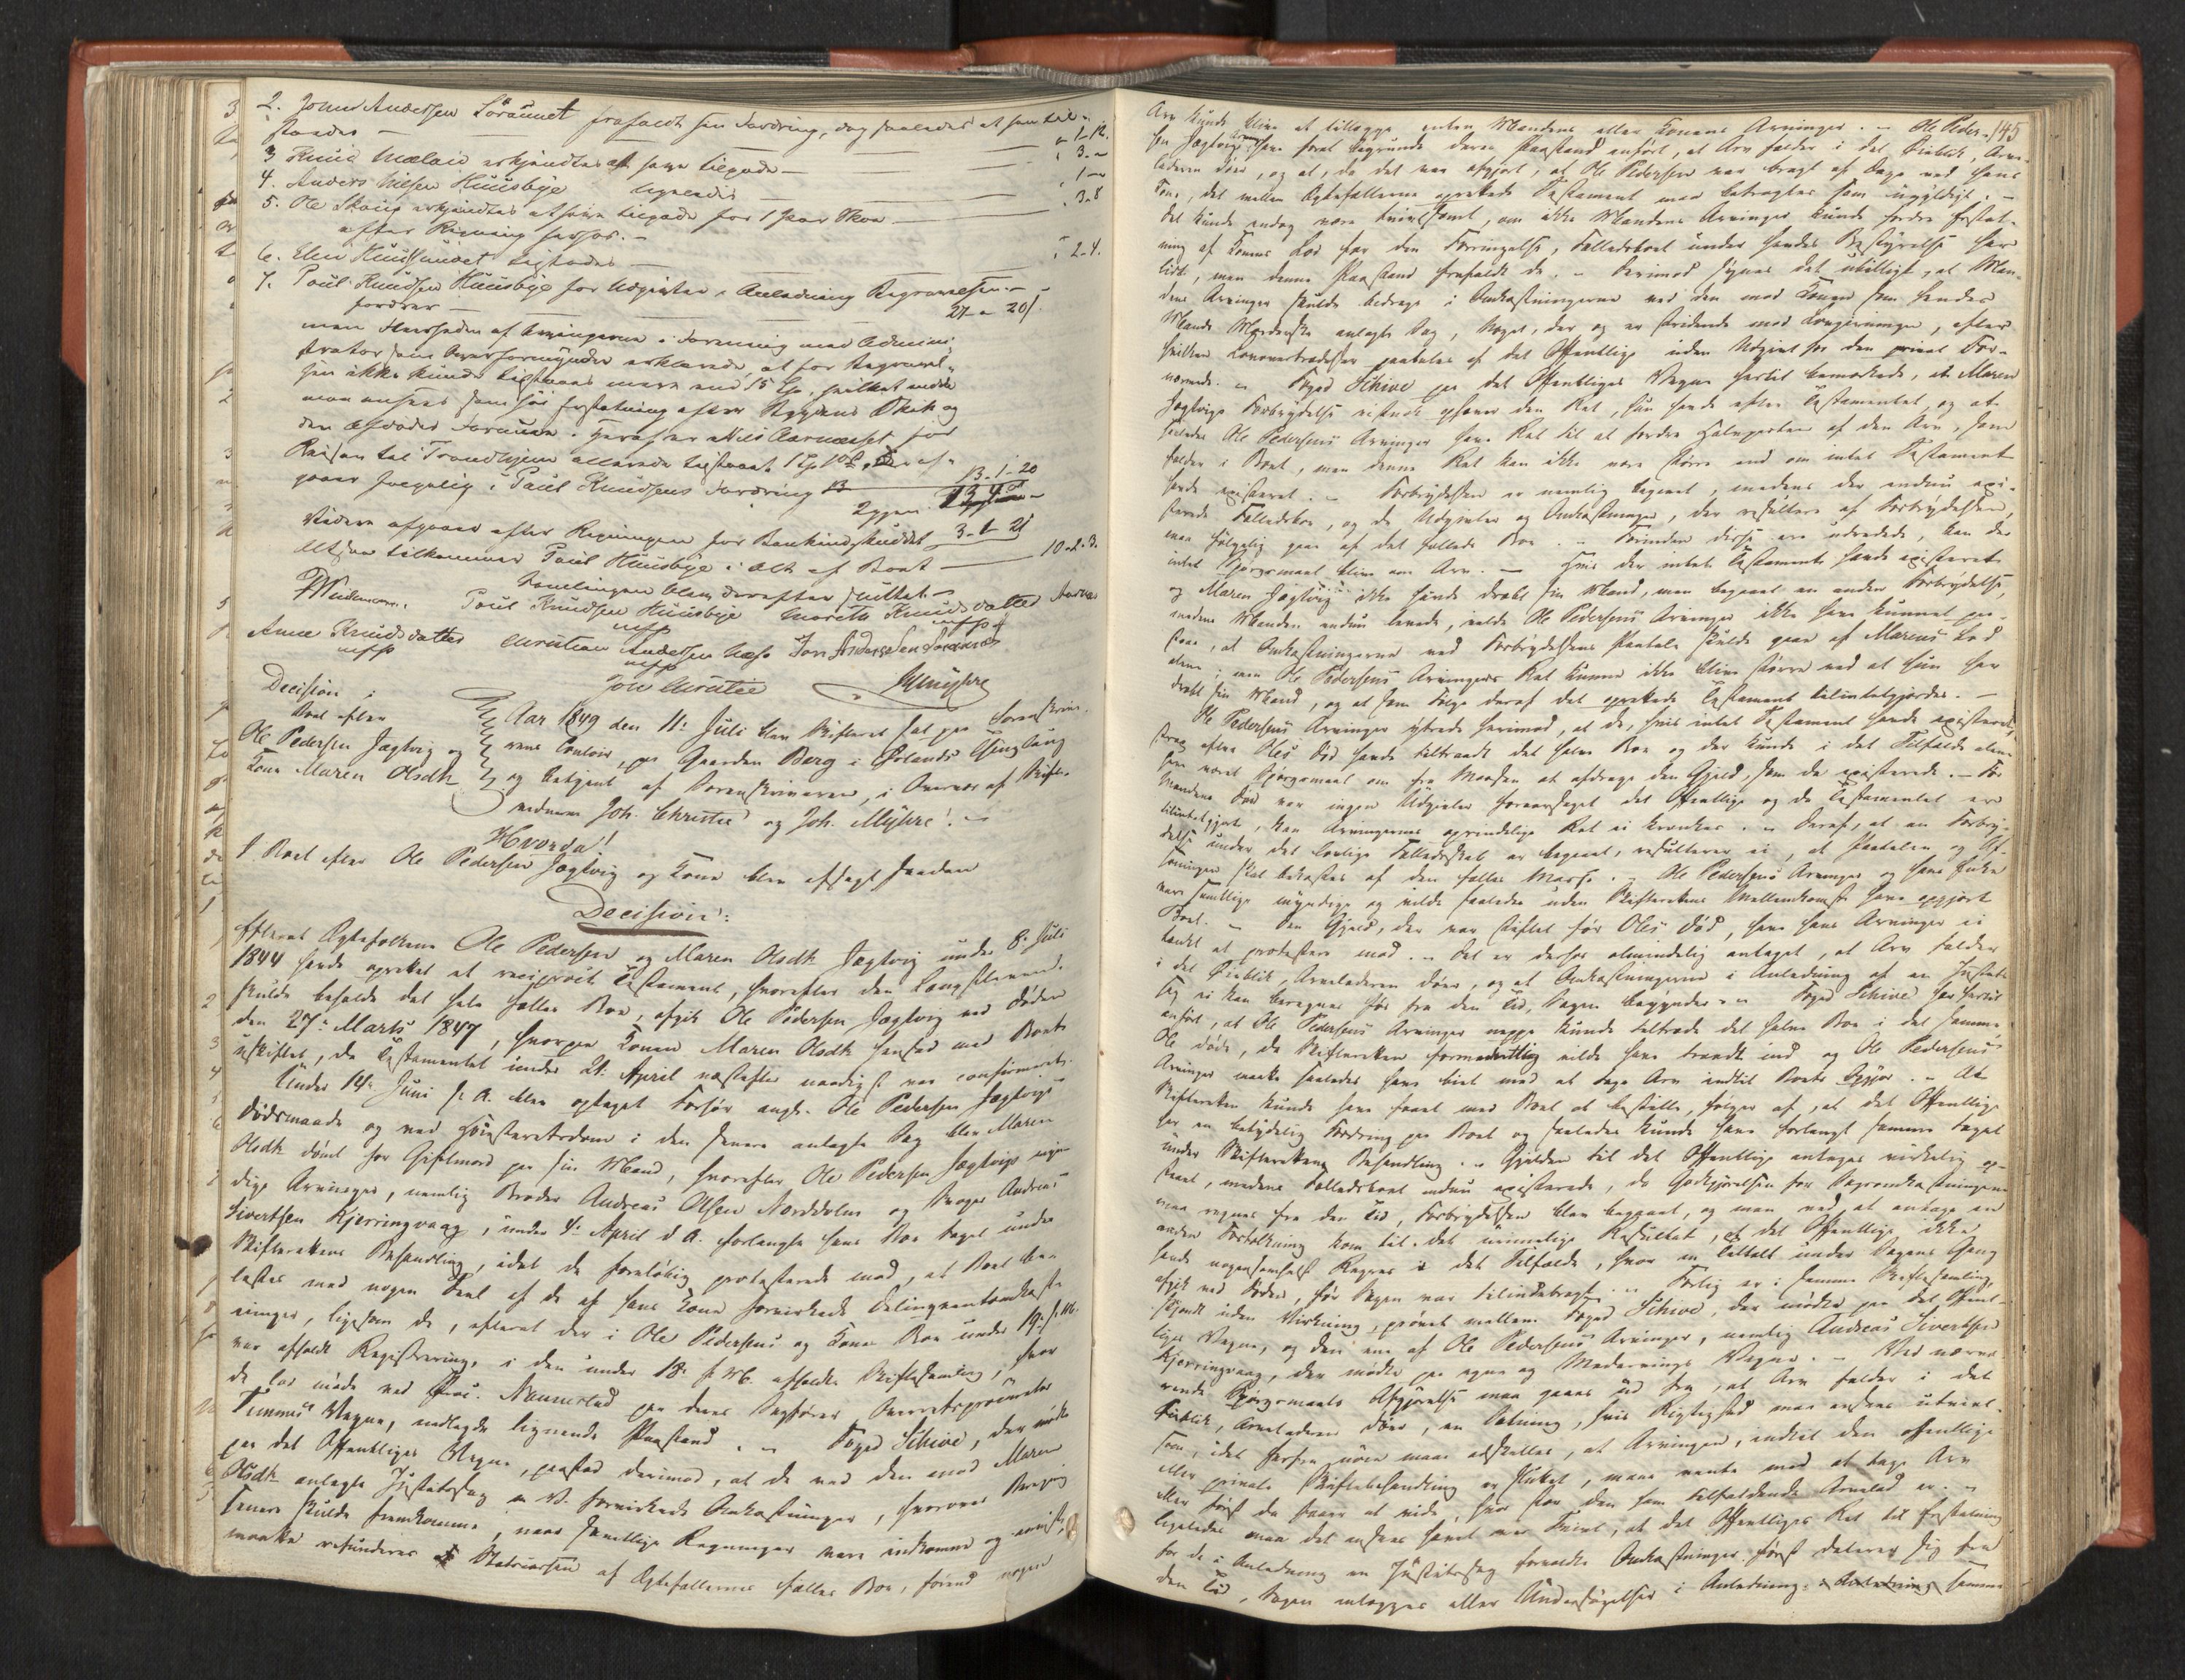 2. John Andersen Söraunet frafaldt sin Fordring, dog saaledes at han til-
staaes — " 1-12.
3 Knud Mælan erkjendtes at have tilgode — " 3 - "
4. Anders Nilsen Huusbye ligeledes — " 1 - "
5. Ole Skaug erkjendtes at have tilgode for 1 par Skoe — " 3-8
efter Regning herfor. -
6. Elen Huusbye ligeledes — " 2-4.
7. Poul Knudsen Huusbye for Udgivter i Anledning Begravelsen -
fordrer — 27 " 20 /
men Fleerheden af Arvingerne i Forening med Admini-
strator som Overformynder erklærede, at for Begravel-
sen ikke kunde tilstaaes mere end 15 Sp, hvilket endda
maa ansees som høi Erstatning efter Bygdens Skik og
den Afdødes Formue. Heraf er Nils Aarnæsset for
Reisen til Trondhjem allerede tilstaaet 1 Sp
gaaer hvegelig i Poul Knudsens Fordring 13 - 1 - 20
Videre afgaaer efter Regningen for 3 - 1 - 21
Altsaa tilkommer Poul Huusbye i Alt af Boet — 10 - 2. 3.
Samlingen blev derefter sluttet. -
Widemann. Poul Knudsen Huusbye Marith Knudsdatter Aarnæs
mfp mfp
Anne Knudsdatter Christian Andersen Næss Jon Andersen Söraunet
mfp mfp
Joh Christie JMyhre
Decision i
Boet efter
Ole Pedersen Jægtvig og
Kone Maren Olsdtr
Aar 1849 den 11: Juli blev Skifteret sat paa Sorenskrive-
rens Contoir, paa Gaarden Berg i Ørlands Thinglaug
og betjent af Sorenskriveren, i Overvær af Skifte-
vidnerne Joh. Christie og Joh. Myhre! -
Hvorda!
I Boet efter Ole Pedersen Jægtvig og Kone blev afsagt saadan
Decision:
Efterat Ægtefolkene Ole Pedersen og Maren Olsdtr Jægtvig under 8. Juli
1844 havde oprettet et reciprocit Testament, hvorefter den Længstlevende
skulde beholde det hele fælles Boe, afgik Ole Pedersen Jægtvig ved Døden
den 27: Marts 1847, hvorpaa Konen Maren Olsdtr hensad med Boet
uskiftet, da Testamentet under 21: April næstefter naadigst var confirmeret.
Under 14: Juni s. A. blev optaget Forhør angd. Ole Pedersen Jægtvigs
Dødsmaade og ved Høiesteretsdom i den senere anlagte Sag blev Maren
Olsdtr dømt for Giftmord paa sin Mand, hvorefter Ole Pedersen Jægtvigs myn-
dige Arvinger, nemlig Broder Andreas Olsen Norddolm og Svoger Andreas
Sivertsen Kjerringvaag, under 4: April d A. forlangte hans Boe taget under
Skifterettens Behandling, idet de foreløbig protesterede mod, at Boet be-
lastes med nogen Deel af de af hans Kone forvirkede Delinqventomkost-
ninger, ligesom de, efterat der i Ole Pedersens og Kones Boe under 19: f. M.
var afholdt Registrering, i den under 18: f M. afholdte Skiftesamling, hvor
de lod møde ved Proc. Nannestad paa deres Sagfører Overretsprocurator
Tummes Vegne, nedlagde lignende Paastand. - Foged Schive, der mødte
paa det Offentliges Vegne, paastod derimod, at de ved den mod Maren
Olsdtr anlagte Justitssag m. V. forvirkede Omkostninger, hvorover Bereging
senere skulde fremkomme, naar samtlige Regninger vare indkomne og anviste,
maatte refunderes Statscassen af Ægtefællernes fælles Boe, førend nogen
145
Arv kunde blive at tillægge enten Mandens eller Konens Arvinger. - Ole Peder-
sen Jægtvigs Arvinger have forat begrunde deres Paastand anført, at Arv falder i det Øieblik, Arve-
laderen døer, og at, da det var afgjort, at Ole Pedersen var bragt af Dage ved hans
Kone, det mellem Ægtefællerne oprettede Testament maa betragtes som ugyldigt. -
Det kunde endog være tvivlsomt, om ikke Mandens Arvinger kunde fordre Erstat-
ning af Konens Lod for den Forringelse, Fælledsboet under hendes Bestyrelse har
lidt, men denne Paastand frafaldt de. - Derimod synes det ubilligt, at Man-
dens Arvinger skulde bidrage i Omkostningerne ved den mod Konen som hendes
Mands Morderske anlagte Sag, Noget, der og er stridende mod Lovgivningen, efter
hvilken Lovovertrædelser paatales af det Offentlige uden Udgivt for den privat For-
nærmede. - Foged Schive paa det Offentliges Vegne hertil bemærkede, at Maren
Jægtvigs Forbrydelse vistnok ophæver den Ret, hun havde efter Testamentet og at
saaledes Ole Pedersens Arvinger have Ret til at fordre Halvparten af den Arv, som
falder i Boet, men denne Ret kan ikke være større end om intet Testament
havde existeret. - Forbrydelsen er nemlig begaaet, medens der endnu exi-
sterede Fælledsboe, og de Udgivter og Omkostninger, der resultere af Forbrydelsen,
maa følgelig gaae af det fælleds Boe. - Forinden disse ere udredede, kan der
intet Spørgsmaal blive om Arv. - Hvis der intet Testamente havde existeret
og Maren Jægtvig ikke havde dræbt sin Mand, men begaaet en anden Forbrydelse,
medens Manden endnu levede, vilde Ole Pedersens Arvinger ikke have kunnet paa-
staae, at Omkostningerne ved Forbrydelsens Paatale skulde gaae af Marens Lod
alene; men Ole Pedersens Arvingers Ret kunne ikke blive større ved at hun har
dræbt sin Mand, og at som Følge deraf det oprettede Testament tilintetgjordes. -
Ole Pedersens Arvinger ytrede herimod, at de, hvis intet Testament havde existeret,
strax efter Oles Død havde tiltraadt det halve Boe og der kunde i det Tilfælde alene
have været Spørgsmaal om fra Massen at afdrage den Gjæld, som da existerede. - Før
Mandens Død var ingen Udgivter foraarsaget det Offentlige og da Testamentet er
tilintetgjort, kan Arvingernes oprindelige Ret ei krænkes. - Deraf, at en Forbry-
delse under det lovlige Fælledsskab er begaaet, resulterer ei, at Paatalen og Af-
soningen skal bekostes af den fælles Masse. - Ole Pedersens Arvinger og hans Enke
vare samtlige myndige og vilde saaledes uden Skifterettens Mellemkomst have opgjort
Boet. - Den Gjæld, der var stiftet før Oles Død, have hans Arvinger ei
tænkt at protestere mod. - Det er derhos almindelig antaget, at Arv falder
i det Øieblik, Arveladeren døer, og at Omkostningerne i Anledning af en Justits-
sag ei kan beregnes før fra den Tid, Sagen begynder. - Foged Schive har hertil
anført, at Ole Pedersens Arvinger neppe kunde tiltræde det halve Boe i det samme
Ole døde, da Skifteretten formodentlig vilde have traadt ind og Ole Pedersens
Arvinger maatte saaledes have biet med at tage Arv indtil Boets Opgjør. - At
Skifteretten kunde have faaet med Boet at bestille, følger af, at det Offentlige
har en betydelig Fordring paa Boet og saaledes kunde have forlangt samme taget
under Skifterettens Behandling. - Gjælden til det Offentlige antages virkelig op-
staaet, medens Fælledsboet endnu existerede, da Godtgjørelsen for Sagsomkostningerne
maa regnes fra den Tid, Forbrydelsen blev begaaet, og man ved at antage en
anden Fortolkning kom til det urimelige Resultat, at det Offentlige ikke
havde nogensomhelst Regres i det Tilfælde, hvor en Tiltalt under Sagens Gang
afgik ved Døden, før Sagen var tilendebragt. - Forlig er i samme Skiftesamling,
skjøndt uden Virkning, prøvet mellem Foged Schive, der mødte paa det Offent-
liges Vegne, og den ene af Ole Pedersens Arvinger, nemlig Andreas Sivertsen
Kjerringvaag, der mødte paa egne og Medarvings Vegne. - Ved nærvæ-
rende Spørgsmaals Afgjørelse maa gaaes ud fra, at Arv falder i det
Øieblik, Arveladeren døer, en Sætning, hvis Rigtighed maa ansees utvivl-
som, idet herfra nøie maa adskilles, at Arvingen, indtil den offentlige
eller private Skiftebehandling er sluttet, maa vente med at tage Arv
eller først da faaer at vide, hvor stor den ham tilfaldende Arvelod er. -
Ligeledes maa det ansees hævet over Tvivl, at det Offentliges Ret til Erstatning
for de i Anledning en Justitssag forvoldte Omkostninger først daterer sig fra
den Tid, Sagen anlægges eller Undersøgelser i Anledning samme